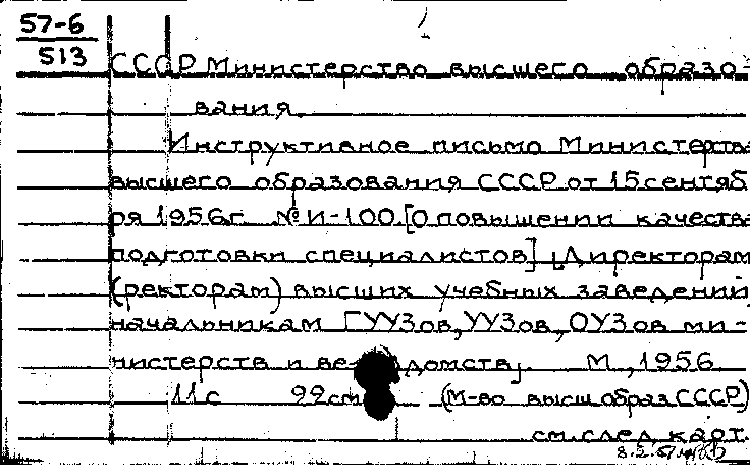 57-6
513
СССР Министерство высшего образо-
вания.
Инструктивное письмо Министерства
высшего образования СССР от 15 сентяб
ря 1956г. № И-100. [О повышении качества
подготовки специалистов] [Директорам
(ректорам) высших учебных заведений,
начальникам ГУУЗов, УУЗов, ОУЗов ми-
нистерств и ведомств]. М., 1956.
11с 22см (М-во высш. образ. СССР)
см. след. карт.